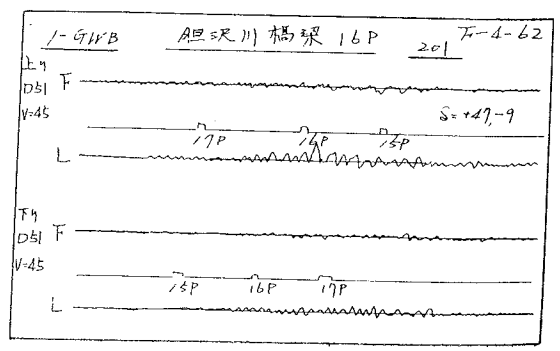 1-GWB 胆沢川橋梁 16P 201 F-4-62
上り
D51 F
V=45
δ=+47,-9
17P 16P 15P
L
下り
D51 F
V=45
15P 16P 17P
L